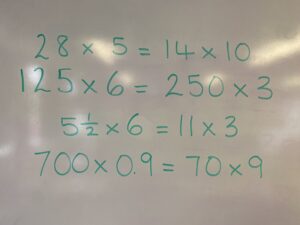 28 × 5 = 14 × 10
125 × 6 = 250 × 3
5½ × 6 = 11 × 3
700 × 0.9 = 70 × 9